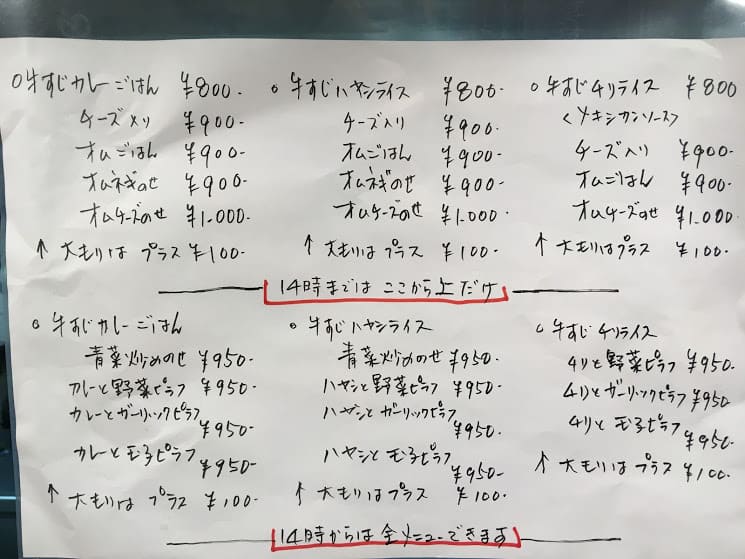 ○牛すじカレーごはん ¥800-
チーズ入り ¥900-
オムごはん ¥900-
オムネギのせ ¥900
オムチーズのせ ¥1.000-
↑ 大もりは プラス ¥100-
○ 牛すじハヤシライス ¥800-
チーズ入り ¥900-
オムごはん ¥900-
オムネギのせ ¥900-
オムチーズのせ ¥1.000-
↑ 大もりは プラス ¥100-
○ 牛すじチリライス ¥800
<メキシカンソース>
チーズ入り ¥900-
オムごはん ¥900-
オムチーズのせ ¥1.000-
↑ 大もりはプラス ¥100-
14時までは ここから上だけ
○ 牛すじカレーごはん
青菜炒めのせ ¥950-
カレーと野菜ピラフ ¥950-
カレーとガーリックピラフ
¥950-
カレーと玉子ピラフ
¥950-
↑ 大もりは プラス ¥100-
○ 牛すじハヤシライス
青菜炒めのせ ¥950-
ハヤシと野菜ピラフ ¥950-
ハヤシとガーリックピラフ
¥950-
ハヤシと玉子ピラフ
¥950-
↑ 大もりはプラス ¥100-
○ 牛すじチリライス
チリと野菜ピラフ ¥950-
チリとガーリックピラフ ¥950
チリと玉子ピラフ
¥950-
↑ 大もりはプラス ¥100-
14時からは全メニューできます